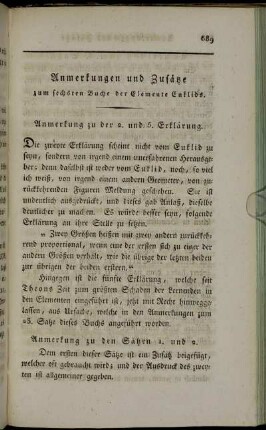 689
Anmerkungen und Zusätze
zum sechsten Buche der Elemente Euklids.
Anmerkung zu der 2. und 5. Erklärung.
Die zweyte Erklärung scheint nicht vom Euklid zu
seyn, sondern von irgend einem unerfahrenen Herausge-
ber; denn daselbst ist weder vom Euklid, noch, so viel
ich weiß, sonst von irgend einem andern Geometer, von zu-
rückkehrenden Figuren Meldung geschehen. Sie ist
undeutlich ausgedrückt, und dieses gab Anlaß, dieselbe
deutlicher zu machen. Es würde besser seyn, folgende
Erklärung an ihre Stelle zu setzen.
„Zwey Größen heißen mit zwey andern zurückkeh-
rend proportional, wenn eine der ersten sich zu einer der
andern Größen verhält, wie die übrige der letzten beiden
zur übrigen der beiden ersten.“
Hingegen ist die fünfte Erklärung, welche seit
Theons Zeit zum größten Schaden der Lernenden in
den Elementen eingeführt ist, jetzt mit Recht hinwegge-
lassen, aus Ursache, welche in den Anmerkungen zum
23. Satze dieses Buchs angeführt worden.
Anmerkung zu den Sätzen 1. und 2.
Dem ersten dieser Sätze ist ein Zusatz beigefügt,
welcher oft gebraucht wird; und der Ausdruck des zwey-
ten ist allgemeiner gegeben.